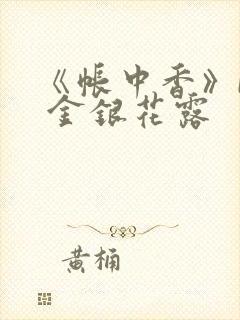 《帐中香》
金银花露
黄桶